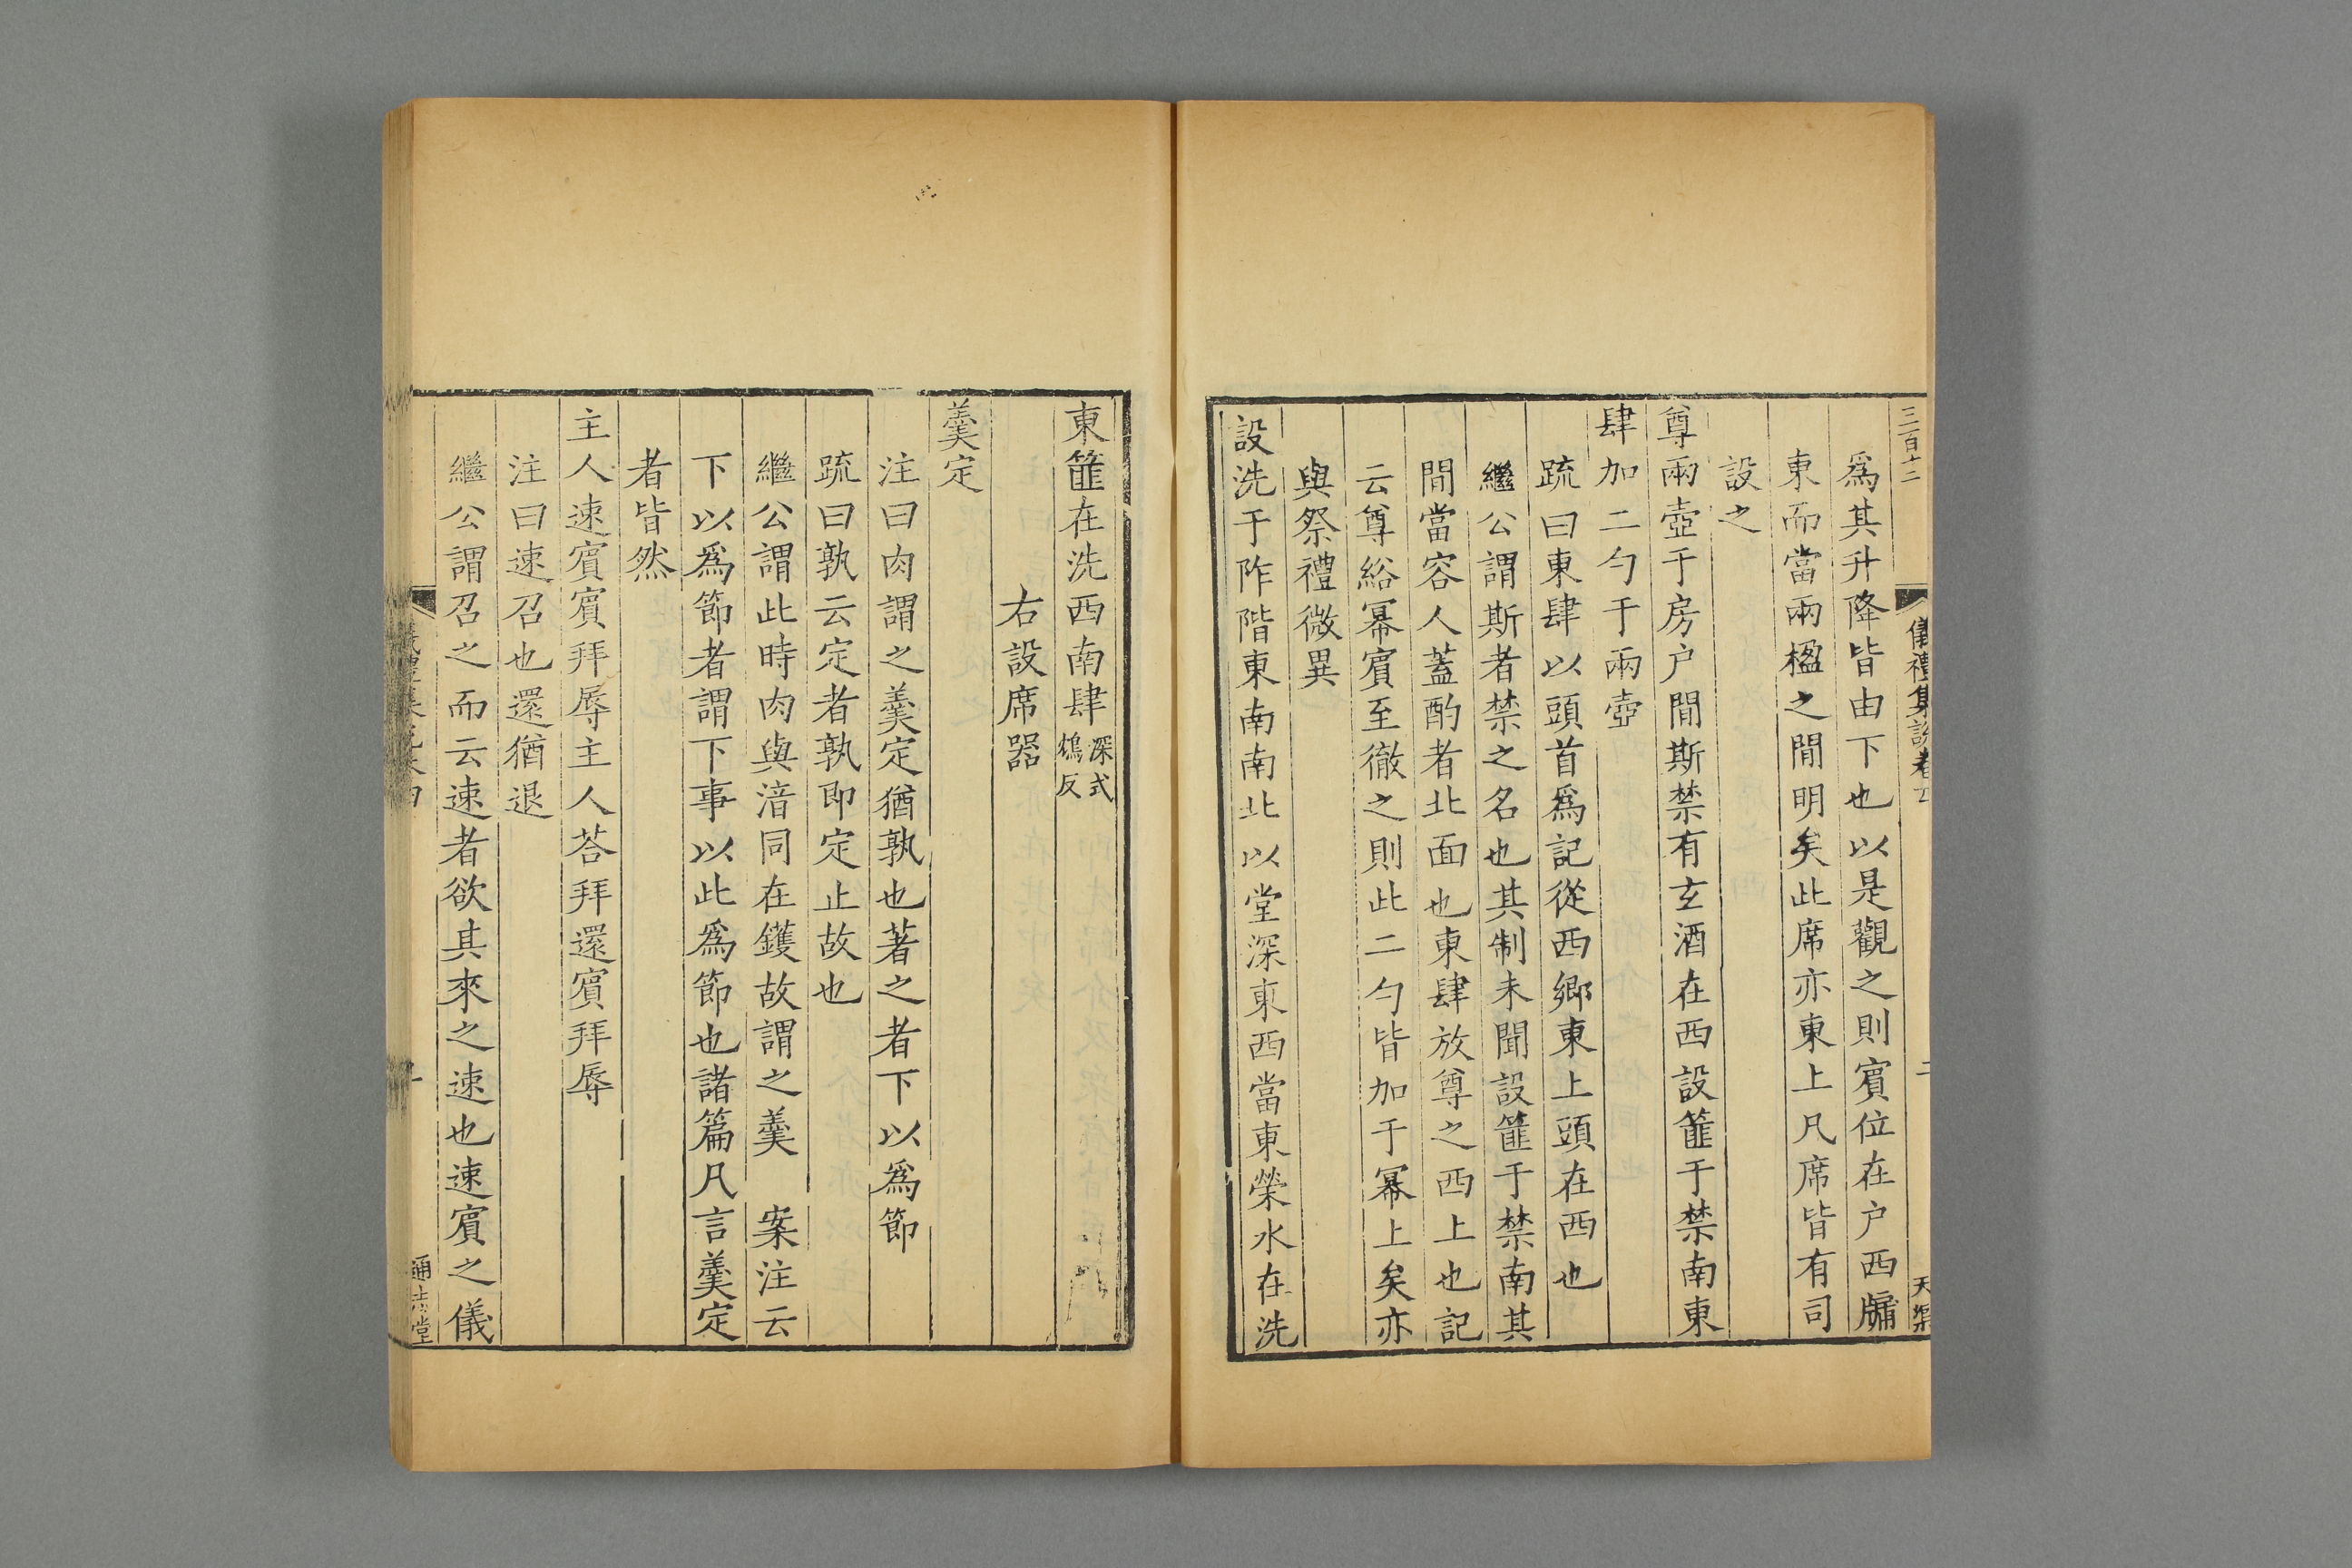 三百十二
儀禮集說卷
二
爲其升降皆由下也以是觀之則賓位在户西牖
東而當兩楹之閒明矣此席亦東上凡席皆有司
設之
尊兩壺于房户閒斯禁有玄酒在西設篚于禁南東
肆加二勺于兩壺
疏曰東肆以頭首爲記從西鄉東上頭在西也
繼公謂斯者禁之名也其制未聞設篚于禁南其
閒當容人蓋酌者北面也東肆放尊之西上也記
云尊綌幂賓至徹之則此二勺皆加于幂上矣亦
與祭禮微異
設洗于阼階東南南北以堂深東西當東榮水在洗
東篚在洗西南肆深式鴆反
右設席器
羹定
注曰肉謂之羹定猶孰也著之者下以爲節
疏曰孰云定者孰即定止故也
繼公謂此時肉與湆同在鑊故謂之羹 案注云
下以爲節者謂下事以此爲節也諸篇凡言羹定
者皆然
主人速賓賓拜辱主人荅拜還賓拜辱
注曰速召也還猶退
繼公謂召之而云速者欲其來之速也速賓之儀
通志堂